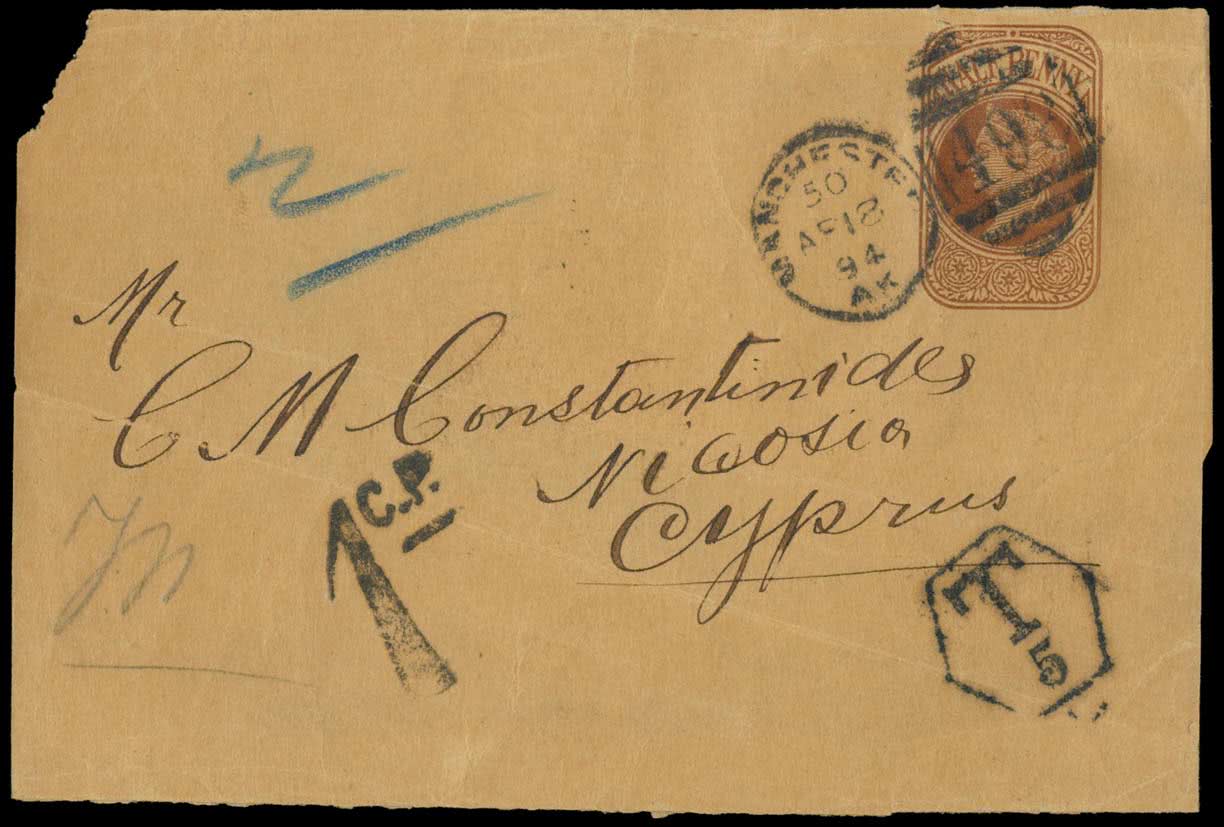 HALF PENNY
498
MANCHESTER
50
AP 18
94
AK
Mr
C M Constantinides
Nicosia
Cyprus
1 C.P.
T
5